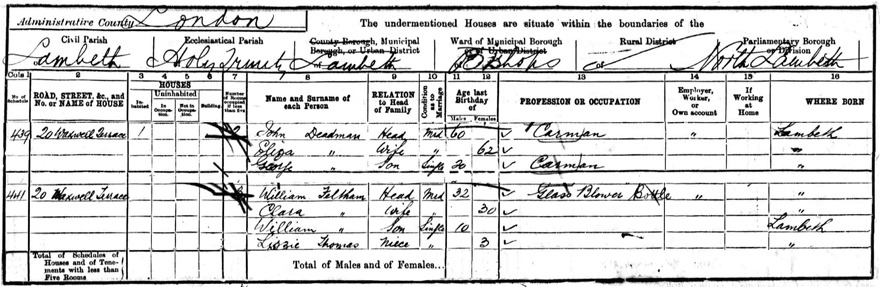 Administrative County London The undermentioned Houses are situate within the boundaries of the
Civil Parish Ecclesiastical Parish County Borough, Municipal Borough, or Urban District Ward of Municipal Borough or Urban District Rural District Parliamentary Borough or Division
Lambeth Holy Trinity Lambeth Bishops North Lambeth
Cols 1 2 3 4 5 6 7 8 9 10 11 12 13 14 15 16
No. of Schedule ROAD, STREET, &c., and No. or NAME of HOUSE HOUSES Inhabited Uninhabited In Occupation Not in Occupation Building Number of Rooms occupied if less than five Name and Surname of each Person RELATION to Head of Family Condition as to Marriage Age last Birthday of Males Females PROFESSION OR OCCUPATION Employer, Worker, or Own account If Working at Home WHERE BORN
439 20 Waxwell Terrace 1 John Deadman Head Md 60 Carman " Lambeth
Eliza " Wife " 62 "
George " Son Single 20 Carman "
441 20 Waxwell Terrace William Feltham Head Md 32 Glass Blower Bottle " "
Clara " Wife " 30 "
William " Son Single 10 Lambeth
Lizzie Thomas Niece " 3 "
Total of Schedules of Houses and of Tenements with less than Five Rooms Total of Males and of Females...